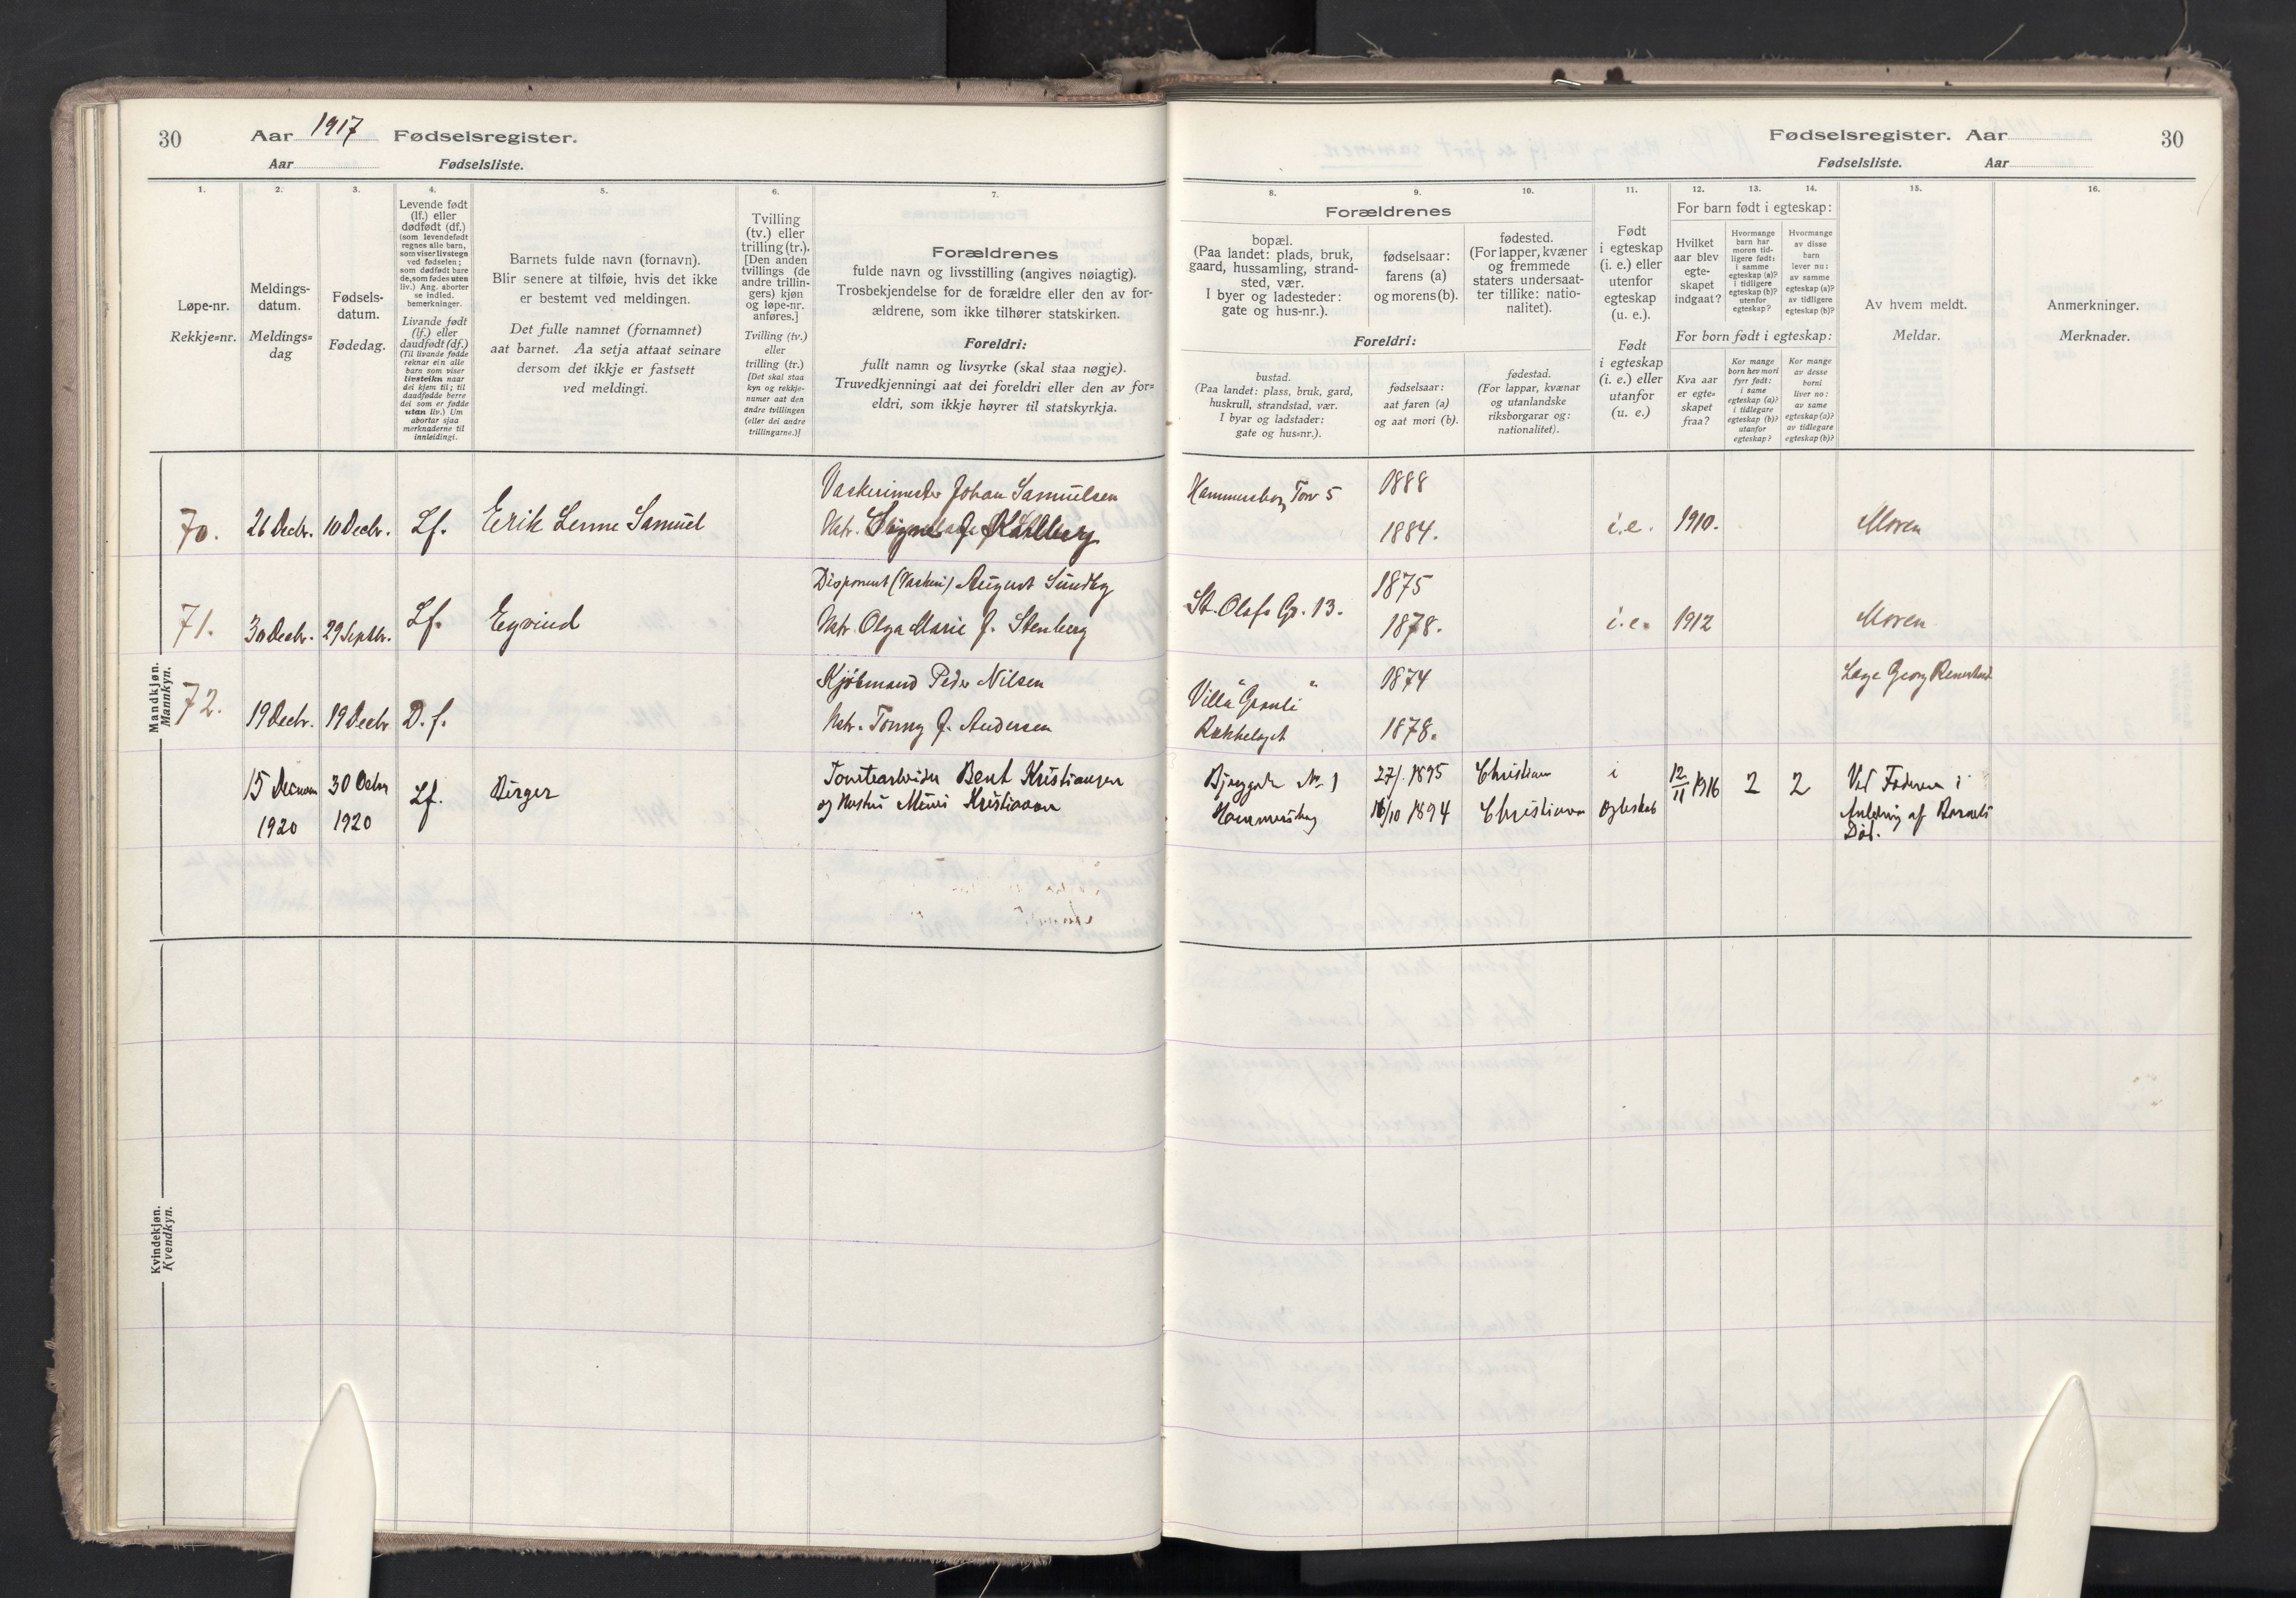 30
Aar 1917 Fødselsregister.
Aar Fødselsliste.
1.
Løpe-nr.
Rekkje=nr.
2.
Meldings-
datum.
Meldings=
dag
3.
Fødsels-
datum.
Fødedag.
4.
Levende født
(lf.) eller
dødfødt (df.)
(som levendefødt
regnes alle barn,
som viser livstegn
ved fødselen;
som dødfødt bare
de, som fødes uten
liv.) Ang. aborter
se indled.
bemerkninger.
Livande født
(lf.) eller
daudfødt (df.)
(Til livande fødde
reknar ein alle
barn som viser
livsteikn naar
dei kjem til; til
daudfødde berre
dei som er fødde
utan liv.) Um
abortar sjaa
merknaderne til
innleidingi.
5.
Barnets fulde navn (fornavn).
Blir senere at tilføie, hvis det ikke
er bestemt ved meldingen.
Det fulle namnet (fornamnet)
aat barnet. Aa setja attaat seinare
dersom det ikkje er fastsett
ved meldingi.
6.
Tvilling
(tv.) eller
trilling (tr.).
[Den anden
tvillings (de
andre trillin-
gers) kjøn
og løpe-nr.
anføres.]
Tvilling (tv.)
eller
trilling (tr.)
[Det skal staa
kyn og rekkje-
numer aat den
andre tvillingen
(eller dei andre
trillingarne.)]
7.
Forældrenes
fulde navn og livsstilling (angives nøiagtig).
Trosbekjendelse for de forældre eller den av for-
ældrene, som ikke tilhører statskirken.
Foreldri:
fullt namn og livsyrke (skal staa nøgje).
Truvedkjenningi aat dei foreldri eller den av for=
eldri, som ikkje høyrer til statskyrkja.
Mandkjøn.
Mannkyn.
70. 26 Decbr. 10 Decbr. Lf. Erik Lenne Samuel
Vaskerimester Johan Samuelsen
Hstr. Signe f. Kahlberg
71. 30 Decbr. 29 Septbr. Lf. Eyvind
Disponent (Vaskeri) August Sundby
Hstr. Olga Marie f. Stenberg
72. 19 Decbr. 19 Decbr D. f.
Kjøbmand Peder Nilsen
Hstr. Tonny f. Andersen
15 30 Octbr Lf. Birger
1920 1920
Bent Kristiansen
og Hustru Kristiansen
Kvindekjøn.
Kvendkyn.
Fødselsregister. Aar 30
Fødselsliste. Aar
8.
Forældrenes
bopæl.
(Paa landet: plads, bruk,
gaard, hussamling, strand-
sted, vær.
I byer og ladesteder:
gate og hus-nr.).
Foreldri:
bustad.
(Paa landet: plass, bruk, gard,
huskrull, strandstad, vær.
I byar og ladstader:
gate og hus=nr.).
9.
fødselsaar:
farens (a)
og morens (b).
fødselsaar:
aat faren (a)
og aat mori (b).
10.
fødested.
(For lapper, kvæner
og fremmede
staters undersaat-
ter tillike: natio-
nalitet).
fødestad.
(For lappar, kvænar
og utanlandske
riksborgarar og:
nationalitet).
11.
Født
i egteskap
(i. e.) eller
utenfor
egteskap
(u. e.).
Født
i egteskap
(i. e.) eller
utanfor
(u. e.)
For barn født i egteskap:
For born født i egteskap:
12.
Hvilket
aar blev
egte-
skapet
indgaat?
Kva aar
er egte=
skapet
fraa?
13.
Hvormange
barn har
moren tid-
ligere født:
i samme
egteskap (a)?
i tidligere
egteskap (b)?
utenfor
egteskap?
Kor mange
born hev mori
fyrr født:
i same
egteskap (a)?
i tidlegare
egteskap (b)?
utanfor
egteskap?
14.
Hvormange
av disse
barn
lever nu:
av samme
egteskap (a)?
av tidligere
egteskap (b)?
Kor mange
av desse
borni
liver no:
av same
egteskap (a)?
av tidlegare
egteskap (b)?
15.
Av hvem meldt.
Meldar.
16.
Anmerkninger.
Merknader.
Hammersborg Torv 5 1888
1884. i.e. 1910. Moren
St. Olafs Gt. 13. 1875
1878. i.e. 1912 Moren
Villa "Granli" 1874
Rakkelaget 1878.
Læge Georg
No 1 27/1. 1895 Christiania i 12/11 1916 2 2 Ved Faderen i
Hammersborg 16/10 1894 Christiania Egteskab
Anledning af Barnets
Død.